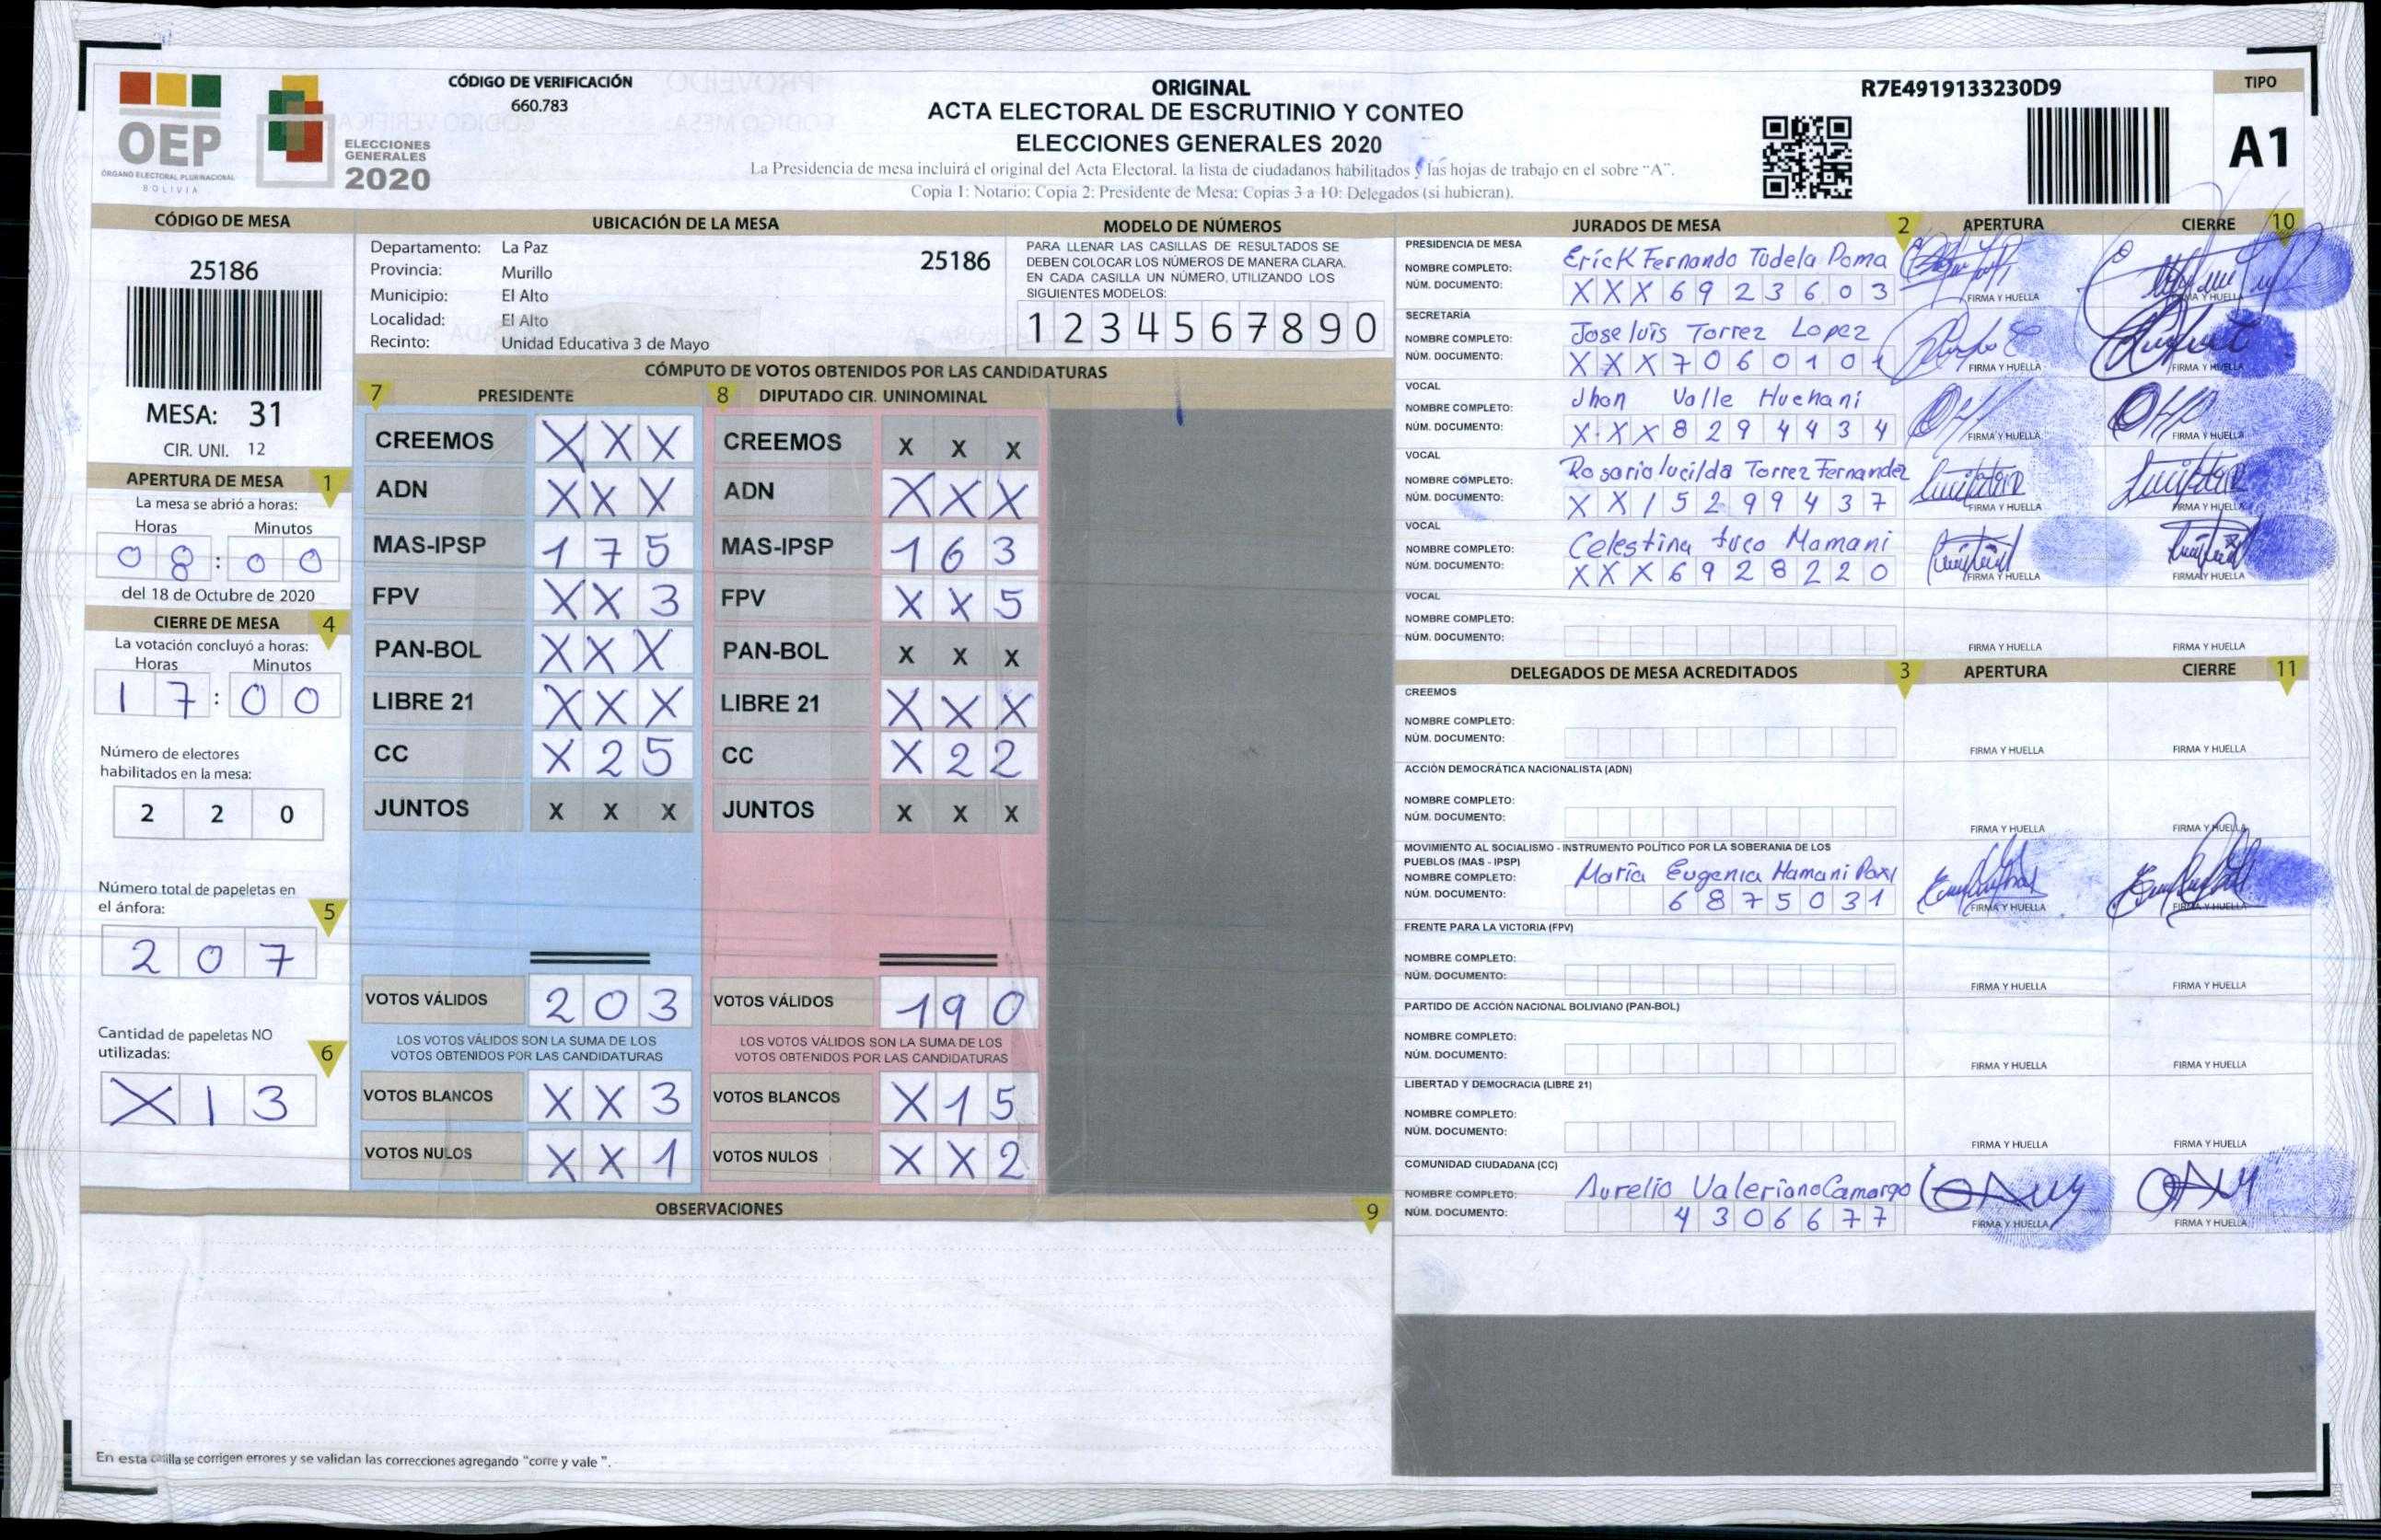 CÓDIGO DE VERIFICACIÓN
660.783
OEP
ÓRGANO ELECTORAL PLURINACIONAL
BOLIVIA
ELECCIONES
GENERALES
2020
ORIGINAL
ACTA ELECTORAL DE ESCRUTINIO Y CONTEO
ELECCIONES GENERALES 2020
La Presidencia de mesa incluirá el original del Acta Electoral. la lista de ciudadanos habilitados y las hojas de trabajo en el sobre “A”.
Copia 1: Notario: Copia 2: Presidente de Mesa: Copias 3 a 10: Delegados (si hubieran).
R7E4919133230D9
TIPO
A1
CÓDIGO DE MESA
25186
MESA: 31
CIR. UNI. 12
UBICACIÓN DE LA MESA
Departamento: La Paz
25186
Provincia: Murillo
Municipio: El Alto
Localidad: El Alto
Recinto: Unidad Educativa 3 de Mayo
MODELO DE NÚMEROS
PARA LLENAR LAS CASILLAS DE RESULTADOS SE
DEBEN COLOCAR LOS NÚMEROS DE MANERA CLARA.
EN CADA CASILLA UN NÚMERO, UTILIZANDO LOS
SIGUIENTES MODELOS:
1 2 3 4 5 6 7 8 9 0
APERTURA DE MESA 1
La mesa se abrió a horas:
Horas Minutos
0 8 : 0 0
del 18 de Octubre de 2020
CIERRE DE MESA 4
La votación concluyó a horas:
Horas Minutos
1 7 : 0 0
Número de electores
habilitados en la mesa:
2 2 0
Número total de papeletas en
el ánfora: 5
2 0 7
Cantidad de papeletas NO
utilizadas: 6
X 1 3
CÓMPUTO DE VOTOS OBTENIDOS POR LAS CANDIDATURAS
7 PRESIDENTE
CREEMOS X X X
ADN X X X
MAS-IPSP 1 7 5
FPV X X 3
PAN-BOL X X X
LIBRE 21 X X X
CC X 2 5
JUNTOS X X X
VOTOS VÁLIDOS 2 0 3
LOS VOTOS VÁLIDOS SON LA SUMA DE LOS
VOTOS OBTENIDOS POR LAS CANDIDATURAS
VOTOS BLANCOS X X 3
VOTOS NULOS X X 1
8 DIPUTADO CIR. UNINOMINAL
CREEMOS X X X
ADN X X X
MAS-IPSP 1 6 3
FPV X X 5
PAN-BOL X X X
LIBRE 21 X X X
CC X 2 2
JUNTOS X X X
VOTOS VÁLIDOS 1 9 0
LOS VOTOS VÁLIDOS SON LA SUMA DE LOS
VOTOS OBTENIDOS POR LAS CANDIDATURAS
VOTOS BLANCOS X 1 5
VOTOS NULOS X X 2
OBSERVACIONES 9
En esta casilla se corrigen errores y se validan las correcciones agregando “corre y vale ”.
JURADOS DE MESA 2 APERTURA CIERRE 10
PRESIDENCIA DE MESA
NOMBRE COMPLETO: Erick Fernando Tudela Poma
NÚM. DOCUMENTO: X X X 6 9 2 3 6 0 3
FIRMA Y HUELLA FIRMA Y HUELLA
SECRETARÍA
NOMBRE COMPLETO: Jose luis Torrez Lopez
NÚM. DOCUMENTO: X X X 7 0 6 0 1 0 1
FIRMA Y HUELLA FIRMA Y HUELLA
VOCAL
NOMBRE COMPLETO: Jhon Valle Huchani
NÚM. DOCUMENTO: X X X 8 2 9 4 4 3 4
FIRMA Y HUELLA FIRMA Y HUELLA
VOCAL
NOMBRE COMPLETO: Rosario lucilda Torrez Fernandez
NÚM. DOCUMENTO: X X 1 5 2 9 9 4 3 7
FIRMA Y HUELLA FIRMA Y HUELLA
VOCAL
NOMBRE COMPLETO: Celestina Mamani
NÚM. DOCUMENTO: X X X 6 9 2 8 2 2 0
FIRMA Y HUELLA FIRMA Y HUELLA
VOCAL
NOMBRE COMPLETO:
NÚM. DOCUMENTO:
FIRMA Y HUELLA FIRMA Y HUELLA
DELEGADOS DE MESA ACREDITADOS 3 APERTURA CIERRE 11
CREEMOS
NOMBRE COMPLETO:
NÚM. DOCUMENTO:
FIRMA Y HUELLA FIRMA Y HUELLA
ACCIÓN DEMOCRÁTICA NACIONALISTA (ADN)
NOMBRE COMPLETO:
NÚM. DOCUMENTO:
FIRMA Y HUELLA FIRMA Y HUELLA
MOVIMIENTO AL SOCIALISMO - INSTRUMENTO POLÍTICO POR LA SOBERANIA DE LOS
PUEBLOS (MAS - IPSP)
NOMBRE COMPLETO: María Eugenia Mamani Paxi
NÚM. DOCUMENTO: 6 8 7 5 0 3 1
FIRMA Y HUELLA FIRMA Y HUELLA
FRENTE PARA LA VICTORIA (FPV)
NOMBRE COMPLETO:
NÚM. DOCUMENTO:
FIRMA Y HUELLA FIRMA Y HUELLA
PARTIDO DE ACCIÓN NACIONAL BOLIVIANO (PAN-BOL)
NOMBRE COMPLETO:
NÚM. DOCUMENTO:
FIRMA Y HUELLA FIRMA Y HUELLA
LIBERTAD Y DEMOCRACIA (LIBRE 21)
NOMBRE COMPLETO:
NÚM. DOCUMENTO:
FIRMA Y HUELLA FIRMA Y HUELLA
COMUNIDAD CIUDADANA (CC)
NOMBRE COMPLETO: Aurelio Valeriano Camargo
NÚM. DOCUMENTO: 4 3 0 6 6 7 7
FIRMA Y HUELLA FIRMA Y HUELLA